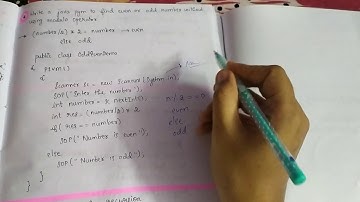 Write a java pgm to find even or odd number without
using modulo operator
→ (number/2) * 2 = number → even
else odd
public class OddEvenDemo
{ P S V M ( )
{
Scanner sc = new Scanner (System.in);
SOP ("Enter the number");
int number = sc.nextInt();
int res = (number/2) * 2
if (res == number)
SOP ("Number is even");
else
SOP ("Number is odd");
}
}
even
else
odd